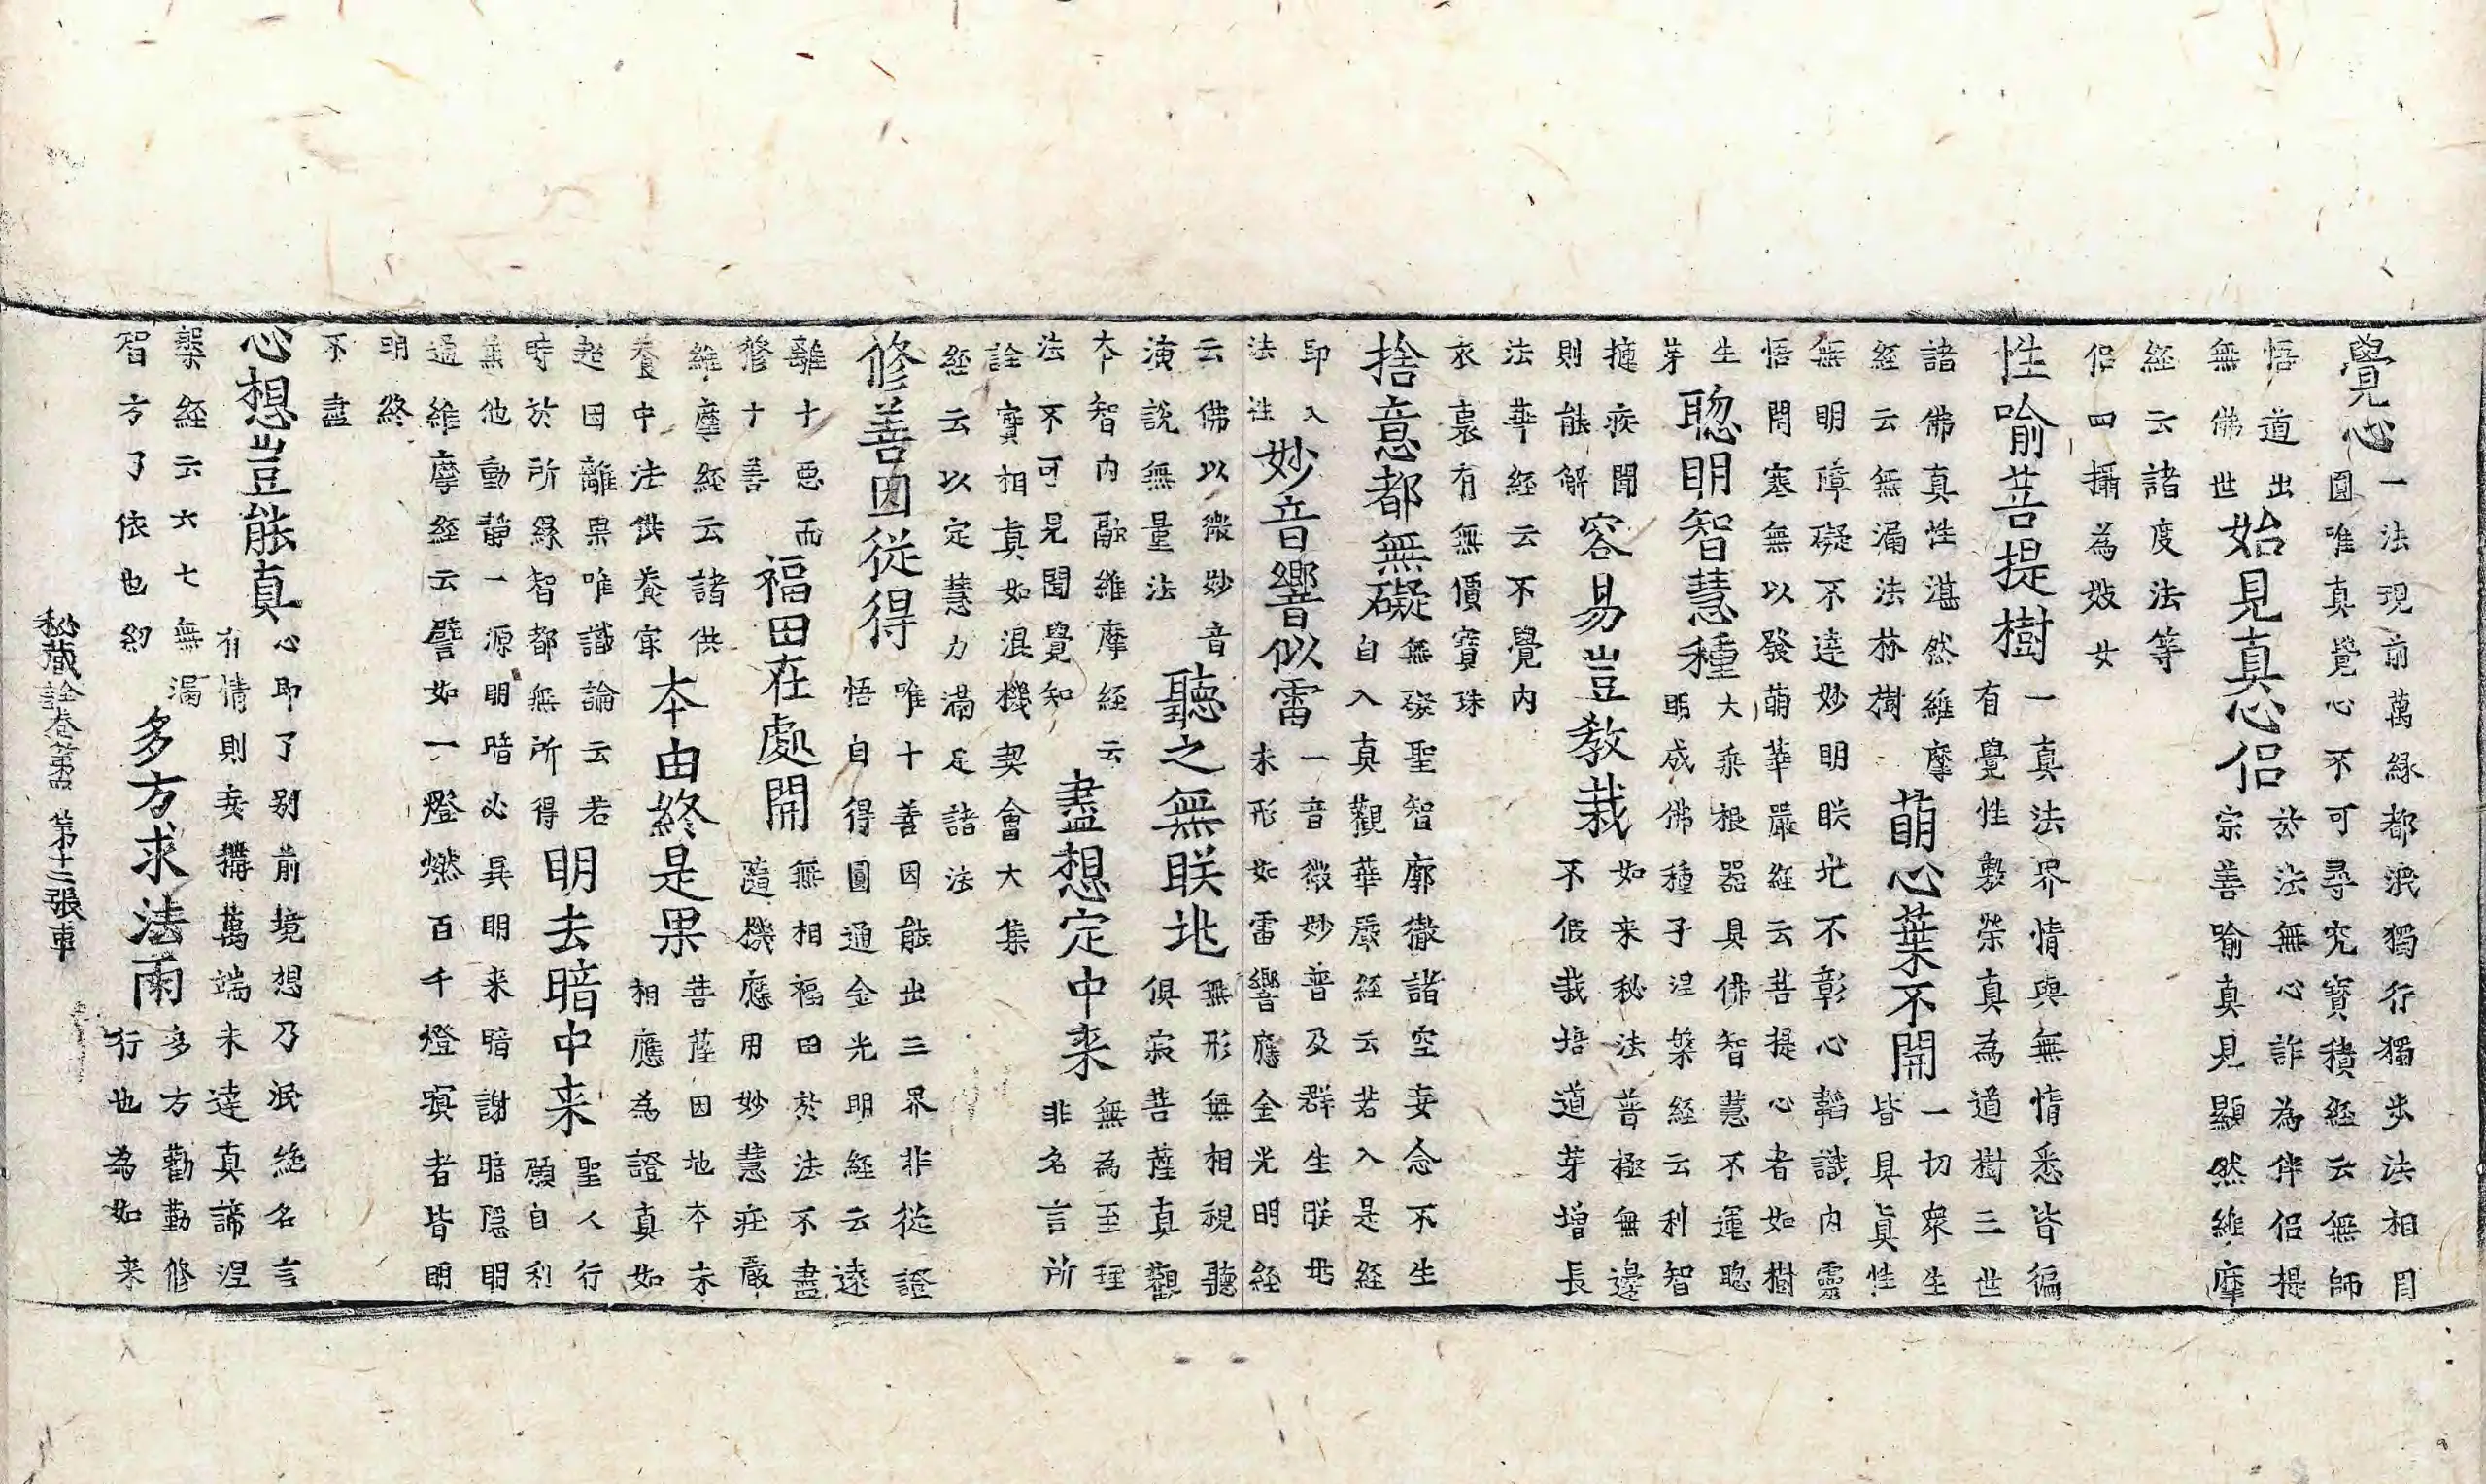 覺心
一法現前萬緣都泯獨行獨步法相目
圓唯真覺心不可尋究寳積經云無師
悟道出
無佛世
始見真心侣
於法無心詐為伴侣提
宗善喻真見顯然維摩
經云諸度法等
侣四攝為妓女
性喻菩提樹
一真法界情與無情悉皆徧
有覺性敷榮真為道樹三世
諸佛真性湛然維摩
經云無漏法林樹
萌心葉不開
一切衆生
皆具真性
無明障礙不達妙明眹兆不彰心韜識内靈
悟閇塞無以發萌華嚴經云菩提心者如樹
生
芽
聦明智慧種
大乗根器具佛智慧不運聦
明成佛種子涅槃經云利智
捷疾聞
則能解
容易豈教栽
如来秘法普極無邊
不假栽培道芽增長
法華經云不覺内
衣裏有無價寳珠
捨意都無礙
無礙聖智廓徹諸空妄念不生
自入真觀華嚴經云若入是經
即入
法性
妙音響似雷
一音微妙普及群生眹兆
未形如雷響應金光明經
云佛以微妙音
演說無量法
聽之無眹兆
無形無相視聽
俱寂菩薩真觀
本智内融維摩經云
法不可見聞覺知
盡想定中来
無為至理
非名言所
詮實相真如浪機契會大集
經云以定慧力滿足諸法
修善因從得
唯十善因能出三界非從證
悟自得圓通金光明經云遠
離十惡而
修十善
福田在處開
無相福田於法不盡
隨機應用妙慧莊嚴
維摩經云諸供
養中法供養㝡
本由終是果
菩薩因地本末
相應為證真如
起因離果唯識論云若
時於所緣智都無所得
明去暗中来
聖人行
願自利
無他動靜一源明暗必異明来暗謝暗隱明
通維摩經云譬如一燈燃百千燈冥者皆明
明終
不盡
心想豈能真
心即了别前境想乃泯絶名言
有情則妄搆萬端未達真諦涅
槃經云六七無漏
智方了依也幻
多方求法雨
多方勸勤修
行也為如来
秘藏詮卷第四　第十三張車